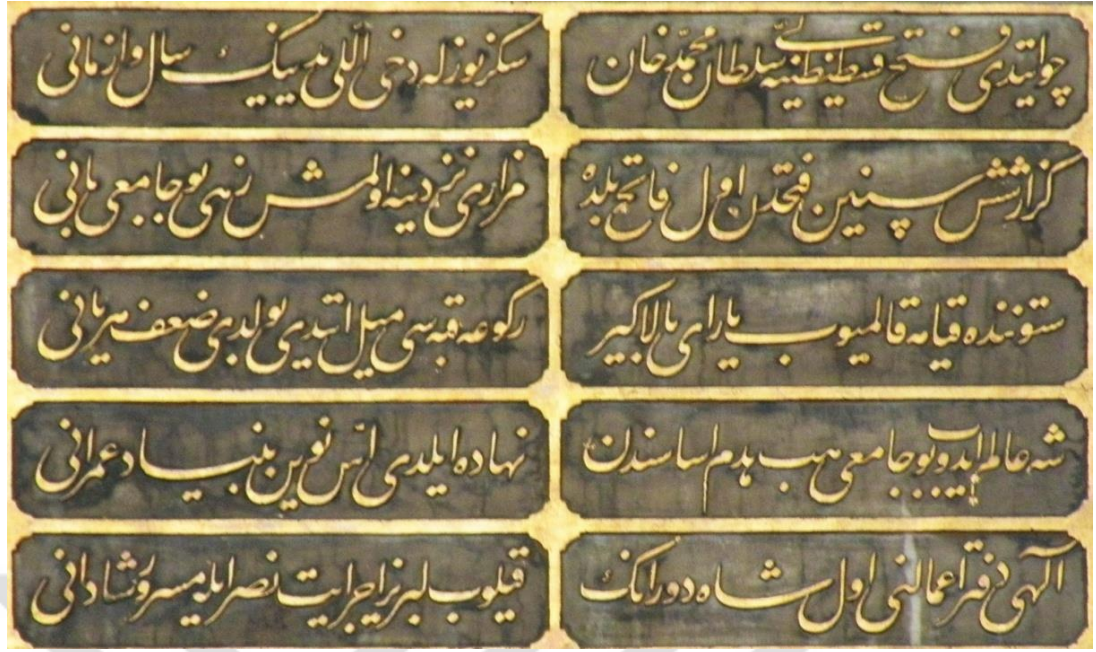 چو ایتدی فتح قسطنطنیه یی سلطان محمد خان
سکز یوزله دخی اللی یدییدی بیک سال و ازمانی
کزار شش سنین فتحدن اول فاتح بلده
مزاری نزدینه اولمش زهی بو جامعی بانی
ستوننده قیامه قالمیوب یارای بالا کبیر
رکوعه قبه سی میل ایتدی بولدی ضعف میزبانی
شه عالم ایدوب بو جامعی هب هدم اساسندن
نهاده ایلدی اس نوین بنیاد عمرانی
الهی دفتر اعمالنی اول شاه دورانک
قیلوب لبریز اجر ایت نصر ایله مسرور شادانی